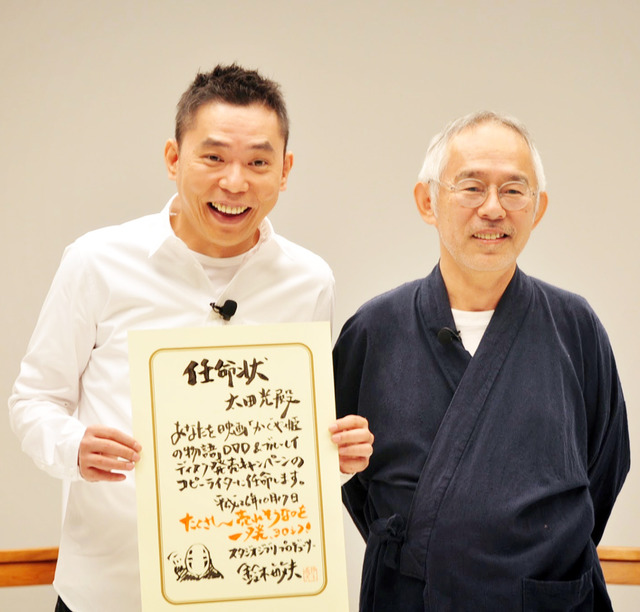 任命状
太田光殿
あなたを映画『かぐや姫
の物語』DVD&ブルーレイ
ディスク発売キャンペーンの
コピーライターに任命します。
平成26年10月17日
スタジオジブリプロデューサー
鈴木敏夫